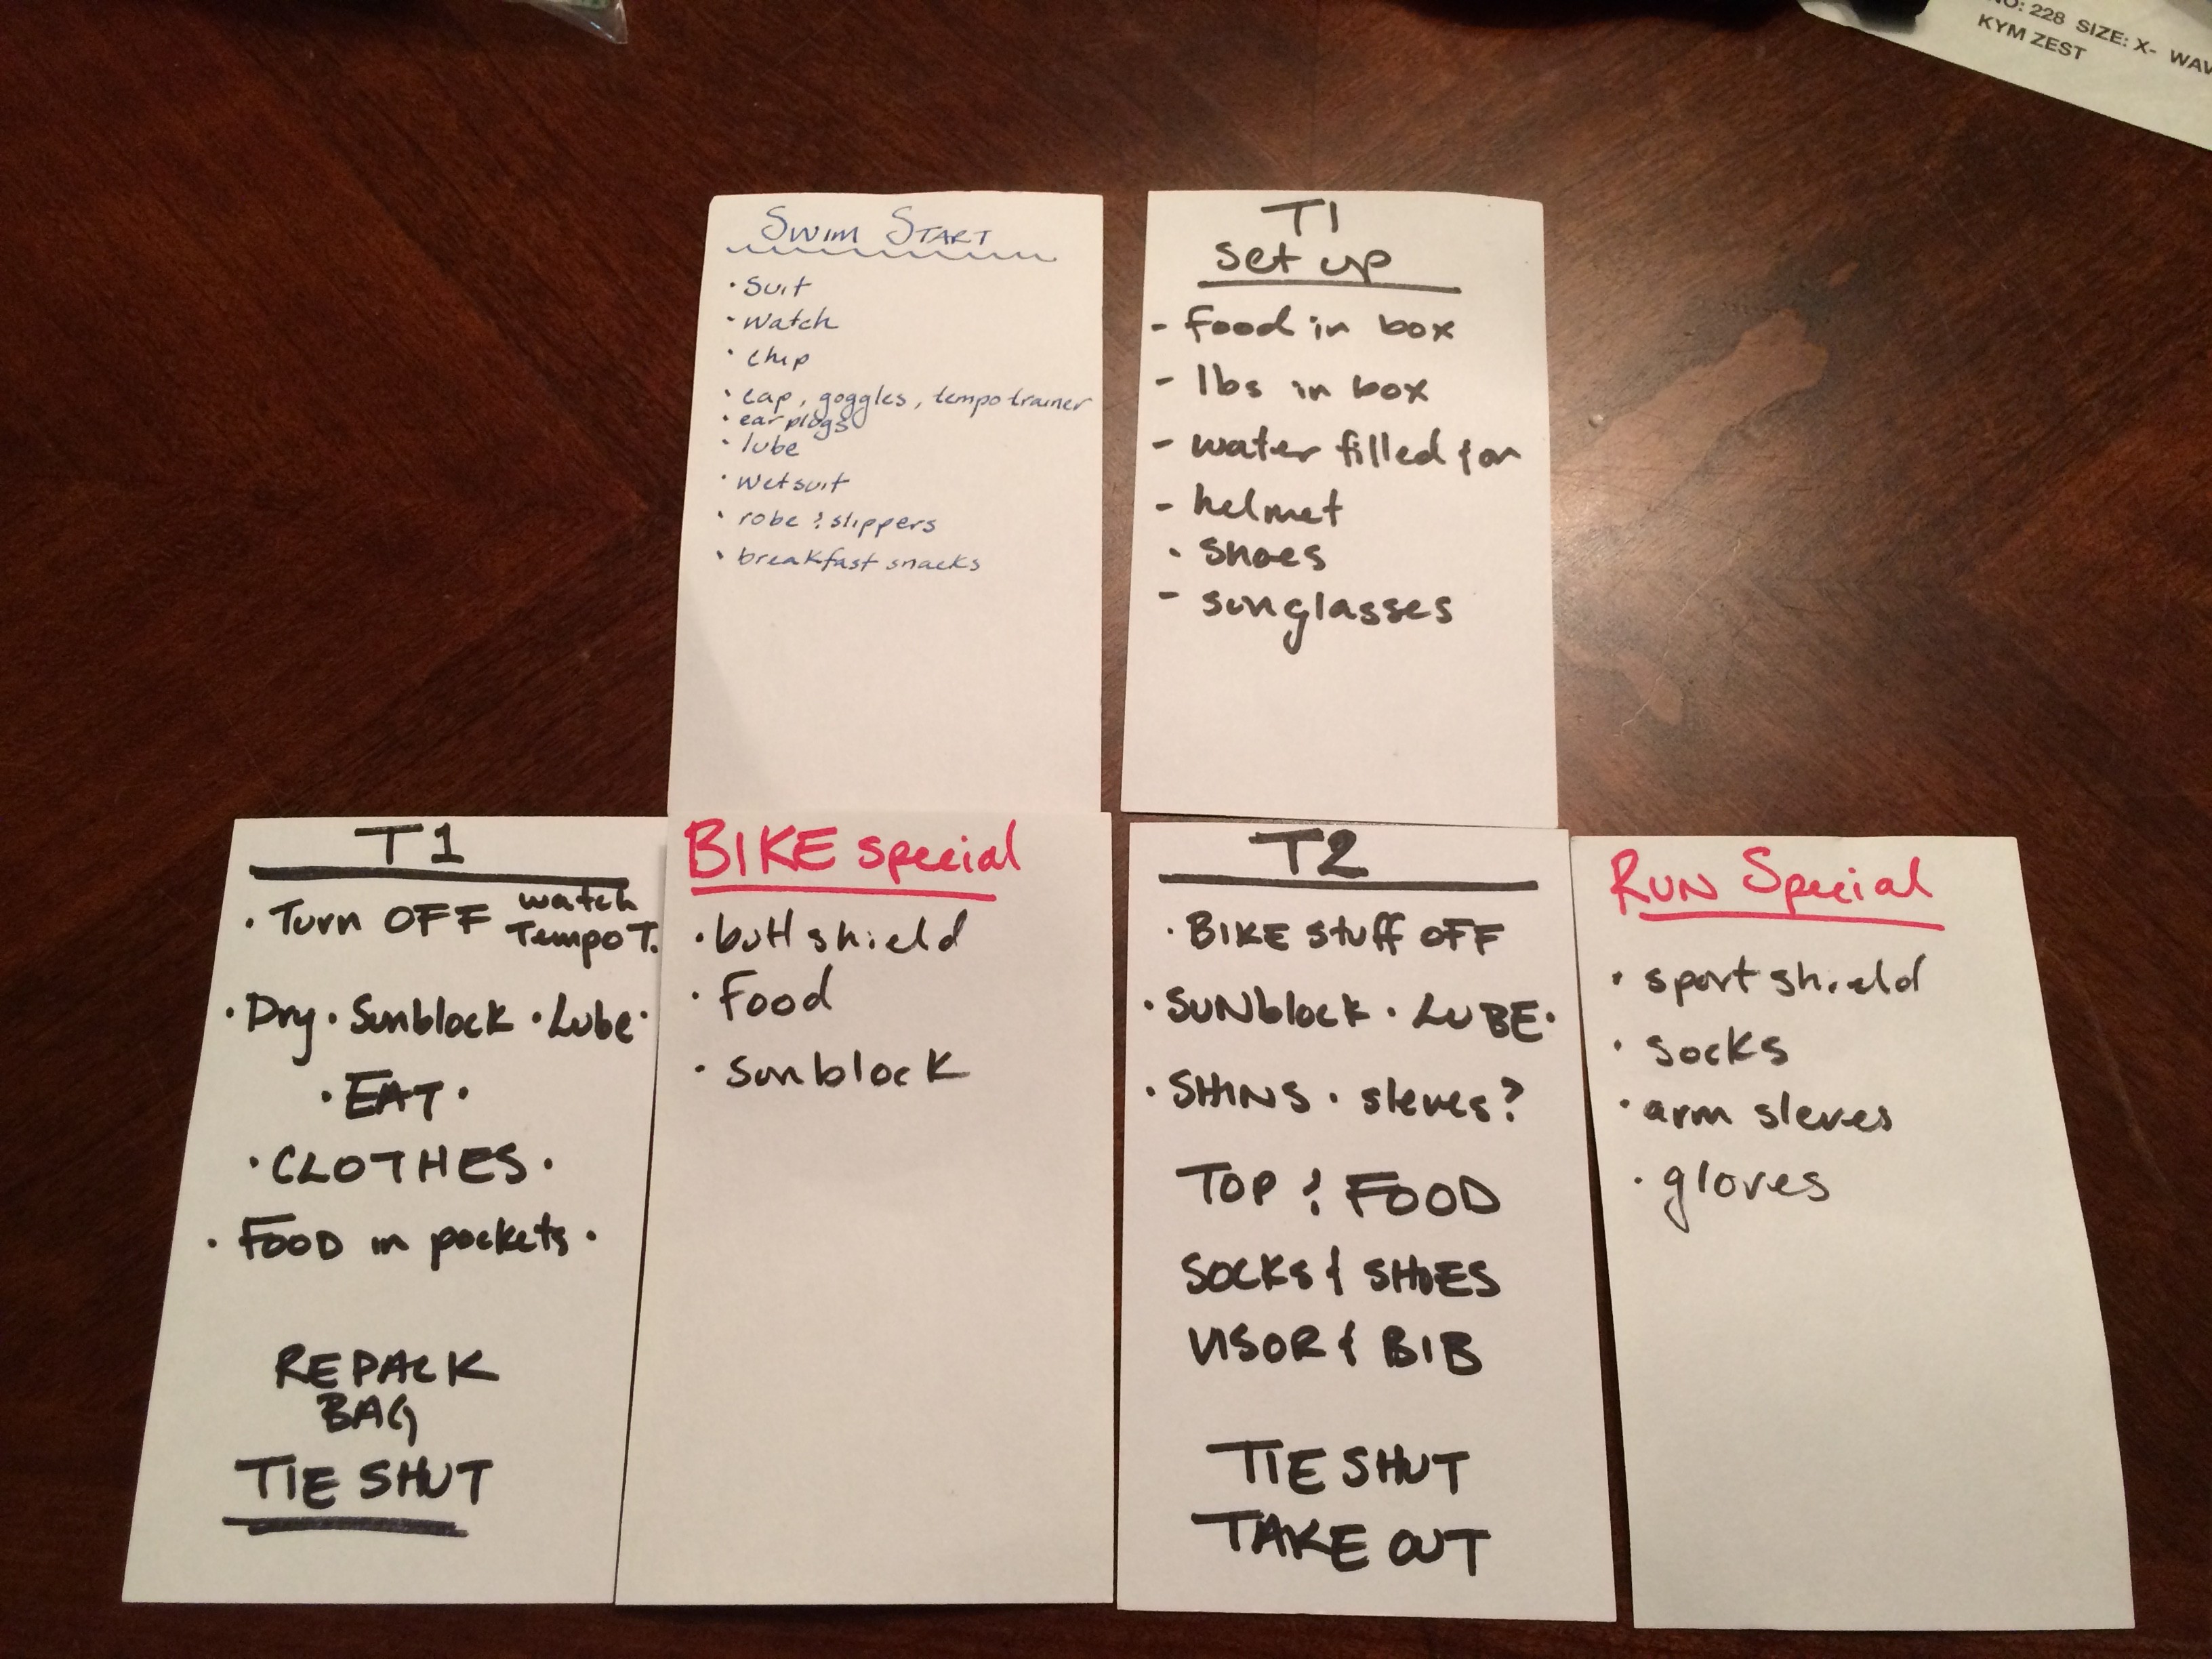 NO: 228 SIZE: X- WAV
KYM ZEST
SWIM START
• suit
- watch
• chip
• cap, goggles, tempo trainer
• ear plogs
• lube
• wetsuit
• robe & slippers
• breakfast snacks
T1
set up
- food in box
- lbs in box
- water filled & on
- helmet
• shoes
- sunglasses
T1
• Turn OFF watch
Tempo T.
• Dry • Sunblock • Lube •
• EAT •
• CLOTHES •
• FOOD in pockets •
REPACK
BAG
TIE SHUT
BIKE special
• butt shield
• food
• sunblock
T2
• BIKE stuff OFF
• SUNblock • LUBE •
• SHINS • sleves?
TOP & FOOD
SOCKS & SHOES
VISOR & BIB
TIE SHUT
TAKE OUT
RUN Special
• sport shield
• socks
• arm sleves
• gloves